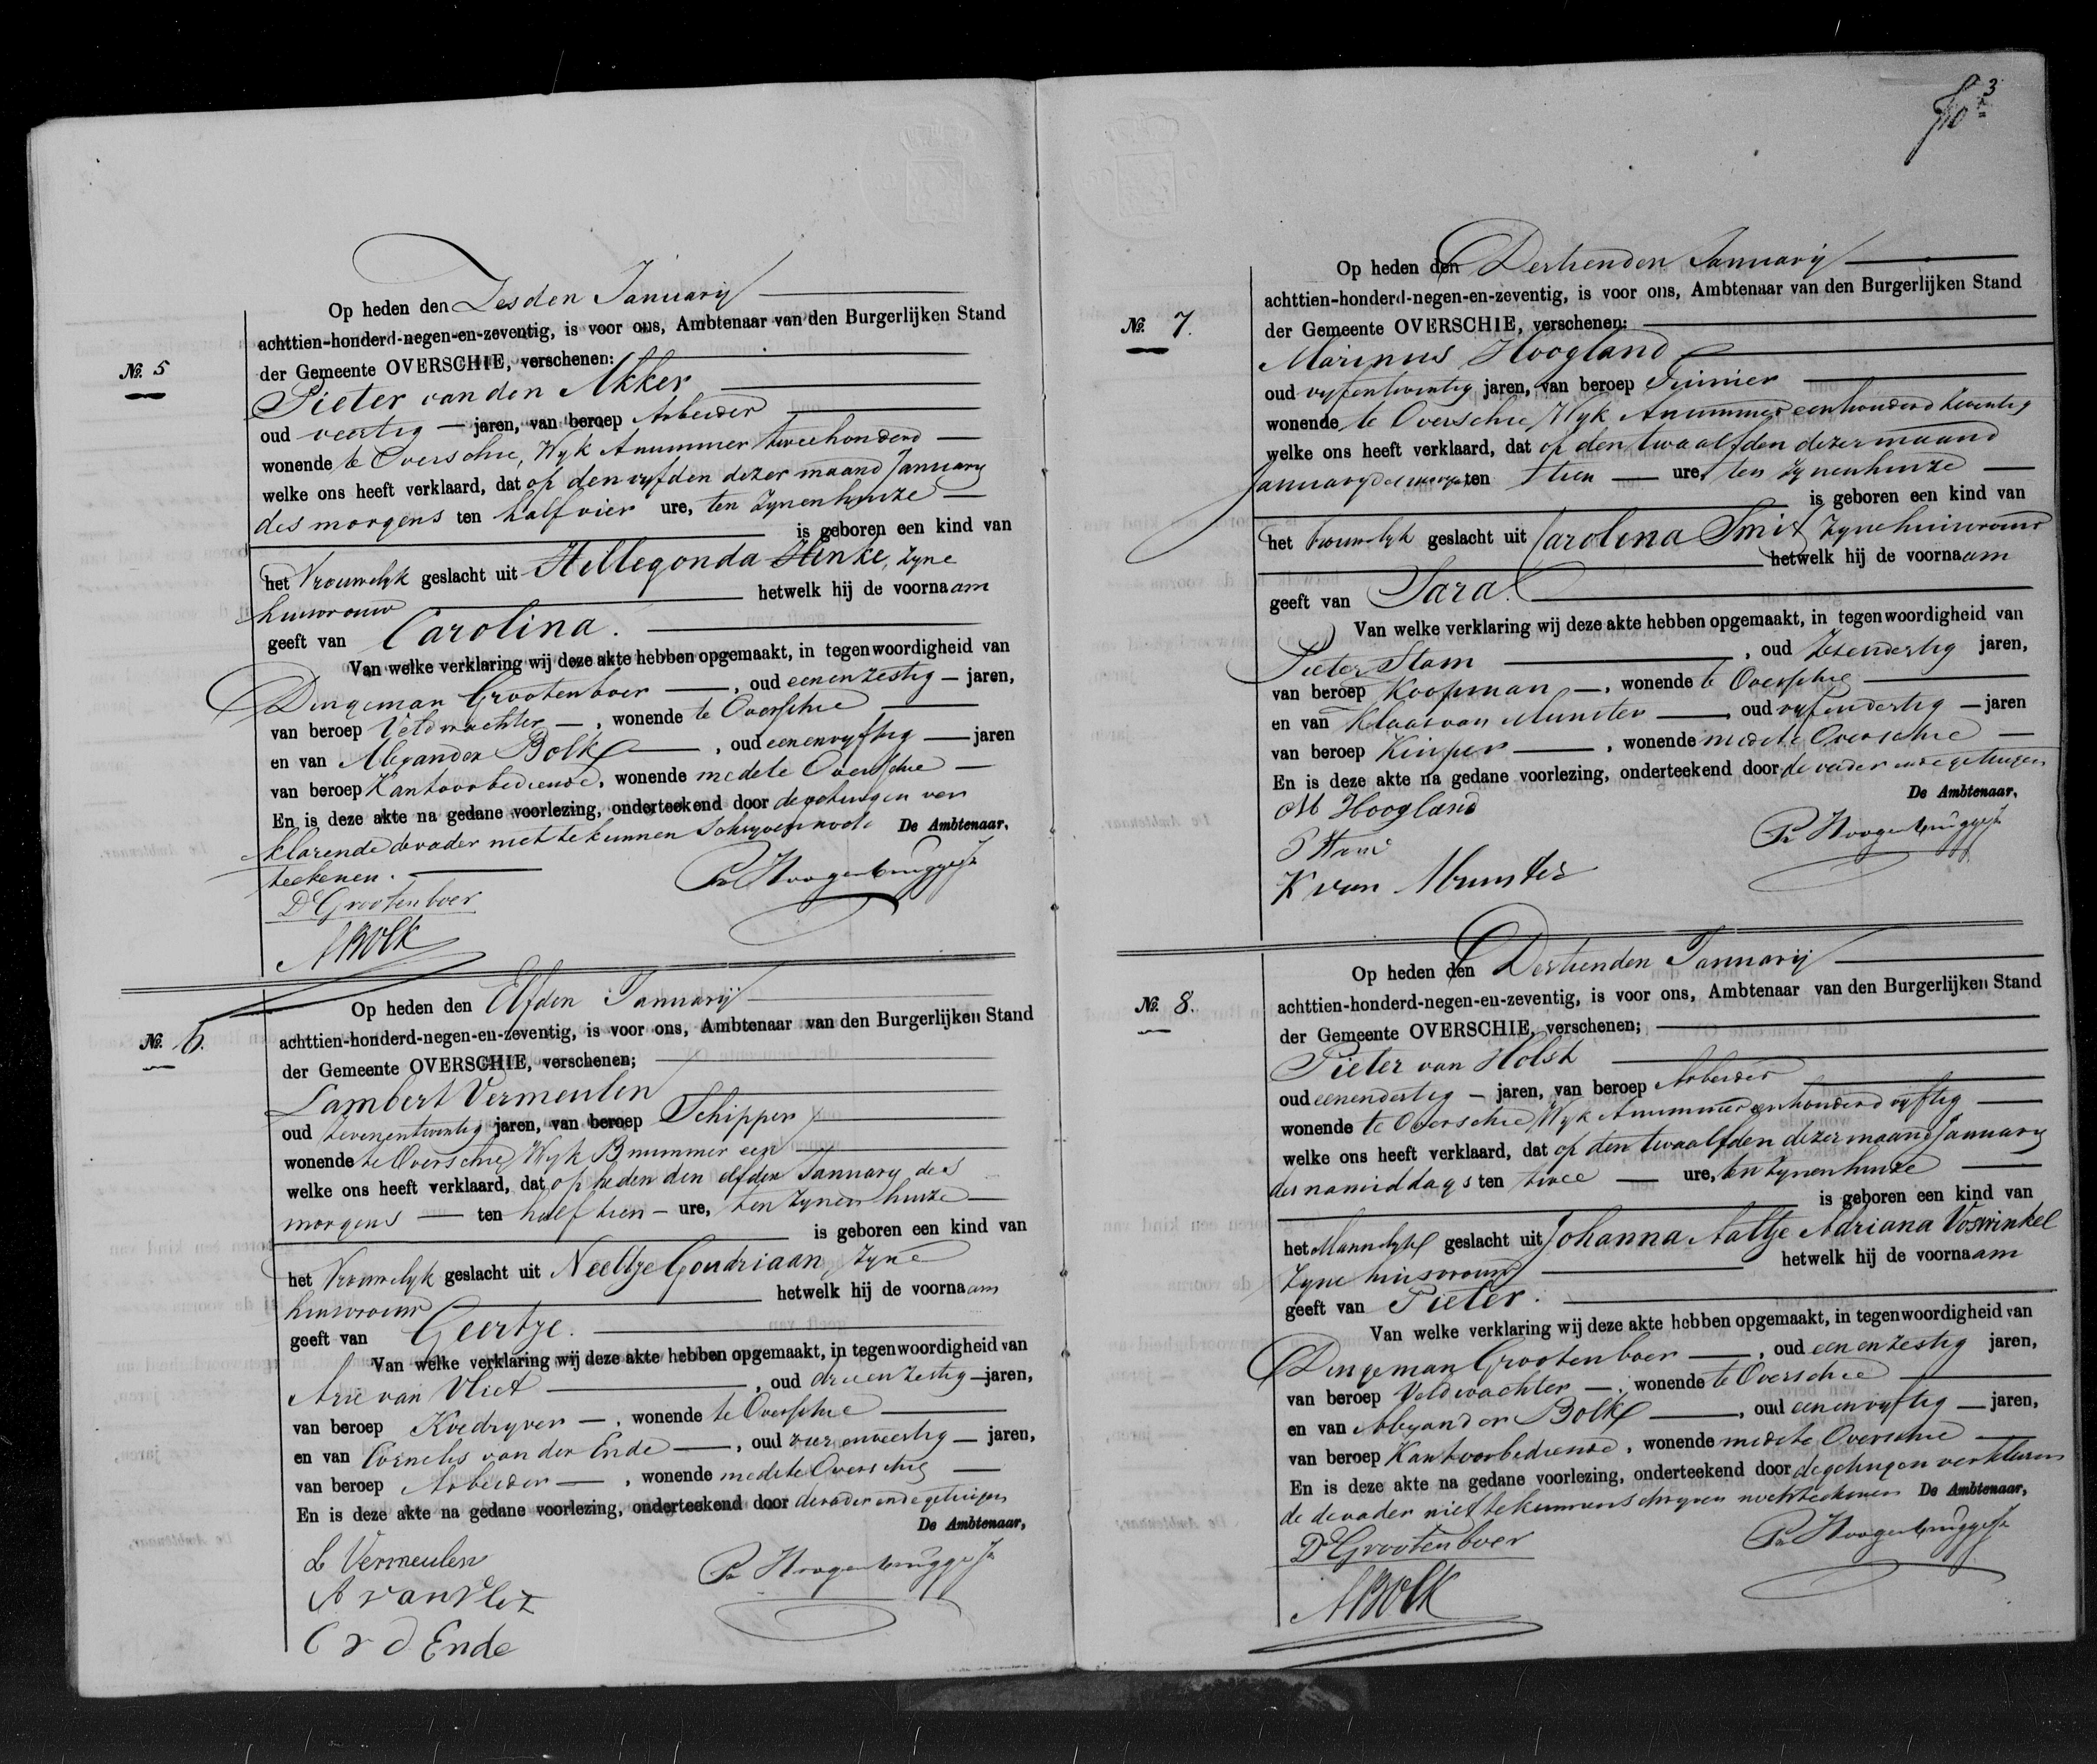 Fo 3
No. 5
Op heden den Zesden Januarij
achttien-honderd-negen-en-zeventig, is voor ons, Ambtenaar van den Burgerlijken Stand
der Gemeente OVERSCHIE, verschenen:
Pieter van den Akker
oud veertig jaren, van beroep Arbeider
wonende te Overschie, Wyk A nummer tweehonderd
welke ons heeft verklaard, dat op den vyfden dezer maand January
des morgens ten half vier ure, ten zynen huize
is geboren een kind van
het Vrouwelyk geslacht uit Hillegonda Henke, zyne
huisvrouw hetwelk hij de voornaam
geeft van Carolina.
Van welke verklaring wij deze akte hebben opgemaakt, in tegenwoordigheid van
Dingeman Grootenboer, oud een en zestig jaren,
van beroep Veldwachter, wonende te Overschie
en van Alexander Bolk, oud een en vyftig jaren
van beroep Kantoorbediende, wonende mede te Overschie
En is deze akte na gedane voorlezing, onderteekend door de getuigen ver
klarende de vader niet te kunnen schryven noch De Ambtenaar,
teekenen.
D Grootenboer
A Bolk
No. 6.
Op heden den Elfden Januarij
achttien-honderd-negen-en-zeventig, is voor ons, Ambtenaar van den Burgerlijken Stand
der Gemeente OVERSCHIE, verschenen;
Lambert Vermeulen
oud zevenentwintig jaren, van beroep Schipper
wonende te Overschie, Wyk B nummer een
welke ons heeft verklaard, dat op heden den elfden January des
morgens ten half tien ure, ten zynen huize
is geboren een kind van
het Vrouwelyk geslacht uit Neeltje Goudriaan, zyne
huisvrouw hetwelk hij de voornaam
geeft van Geertje.
Van welke verklaring wij deze akte hebben opgemaakt, in tegenwoordigheid van
Arie van Vliet, oud drie en zestig jaren,
van beroep Koedryver, wonende te Overschie
en van Cornelis van der Ende, oud vier en veertig jaren,
van beroep Arbeider, wonende mede te Overschie
En is deze akte na gedane voorlezing, onderteekend door de vader en de getuigen
De Ambtenaar,
L Vermeulen
A van Vliet
C v d Ende
No. 7.
Op heden den Dertienden Januarij
achttien-honderd-negen-en-zeventig, is voor ons, Ambtenaar van den Burgerlijken Stand
der Gemeente OVERSCHIE, verschenen:
Marinus Hoogland
oud vyfentwintig jaren, van beroep Tuinier
wonende te Overschie, Wyk A nummer eenhonderd twintig
welke ons heeft verklaard, dat op den twaalfden dezer maand
January des morgens ten tien ure, ten zynen huize
is geboren een kind van
het Vrouwelyk geslacht uit Carolina Smit zyne huisvrouw
hetwelk hij de voornaam
geeft van Sara.
Van welke verklaring wij deze akte hebben opgemaakt, in tegenwoordigheid van
Pieter Stam, oud zesendertig jaren,
van beroep Koopman, wonende te Overschie
en van Klaas van Munster, oud vyfendertig jaren
van beroep Kuiper, wonende mede te Overschie
En is deze akte na gedane voorlezing, onderteekend door de vader en de getuigen
De Ambtenaar,
M Hoogland
P Stam
K van Munster
No. 8.
Op heden den Dertienden Januarij
achttien-honderd-negen-en-zeventig, is voor ons, Ambtenaar van den Burgerlijken Stand
der Gemeente OVERSCHIE, verschenen;
Pieter van Holst
oud eenendertig jaren, van beroep Arbeider
wonende te Overschie, Wyk A nummer eenhonderd vyftig
welke ons heeft verklaard, dat op den twaalfden dezer maand January
des namiddags ten twee ure, ten zynen huize
is geboren een kind van
het Mannelyk geslacht uit Johanna Aaltje Adriana Voswinkel
zyne huisvrouw hetwelk hij de voornaam
geeft van Pieter.
Van welke verklaring wij deze akte hebben opgemaakt, in tegenwoordigheid van
Dingeman Grootenboer, oud een en zestig jaren,
van beroep Veldwachter, wonende te Overschie
en van Alexander Bolk, oud een en vyftig jaren,
van beroep Kantoorbediende, wonende mede te Overschie
En is deze akte na gedane voorlezing, onderteekend door de getuigen verklaren
de de vader niet te kunnen schryven noch teekenen De Ambtenaar,
D Grootenboer
A Bolk